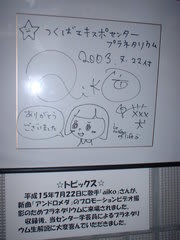 つくばエキスポセンター
プラネタリウム
2003.7.22
ありがとう
ございました
☆トピックス☆
平成15年7月22日に歌手「aiko」さんが、
新曲「アンドロメダ」のプロモーションビデオ撮
影のためプラネタリウムに来場されました。
収録後、当センター学芸員によるプラネタリ
ウム生解説に大変喜んでいただきました。